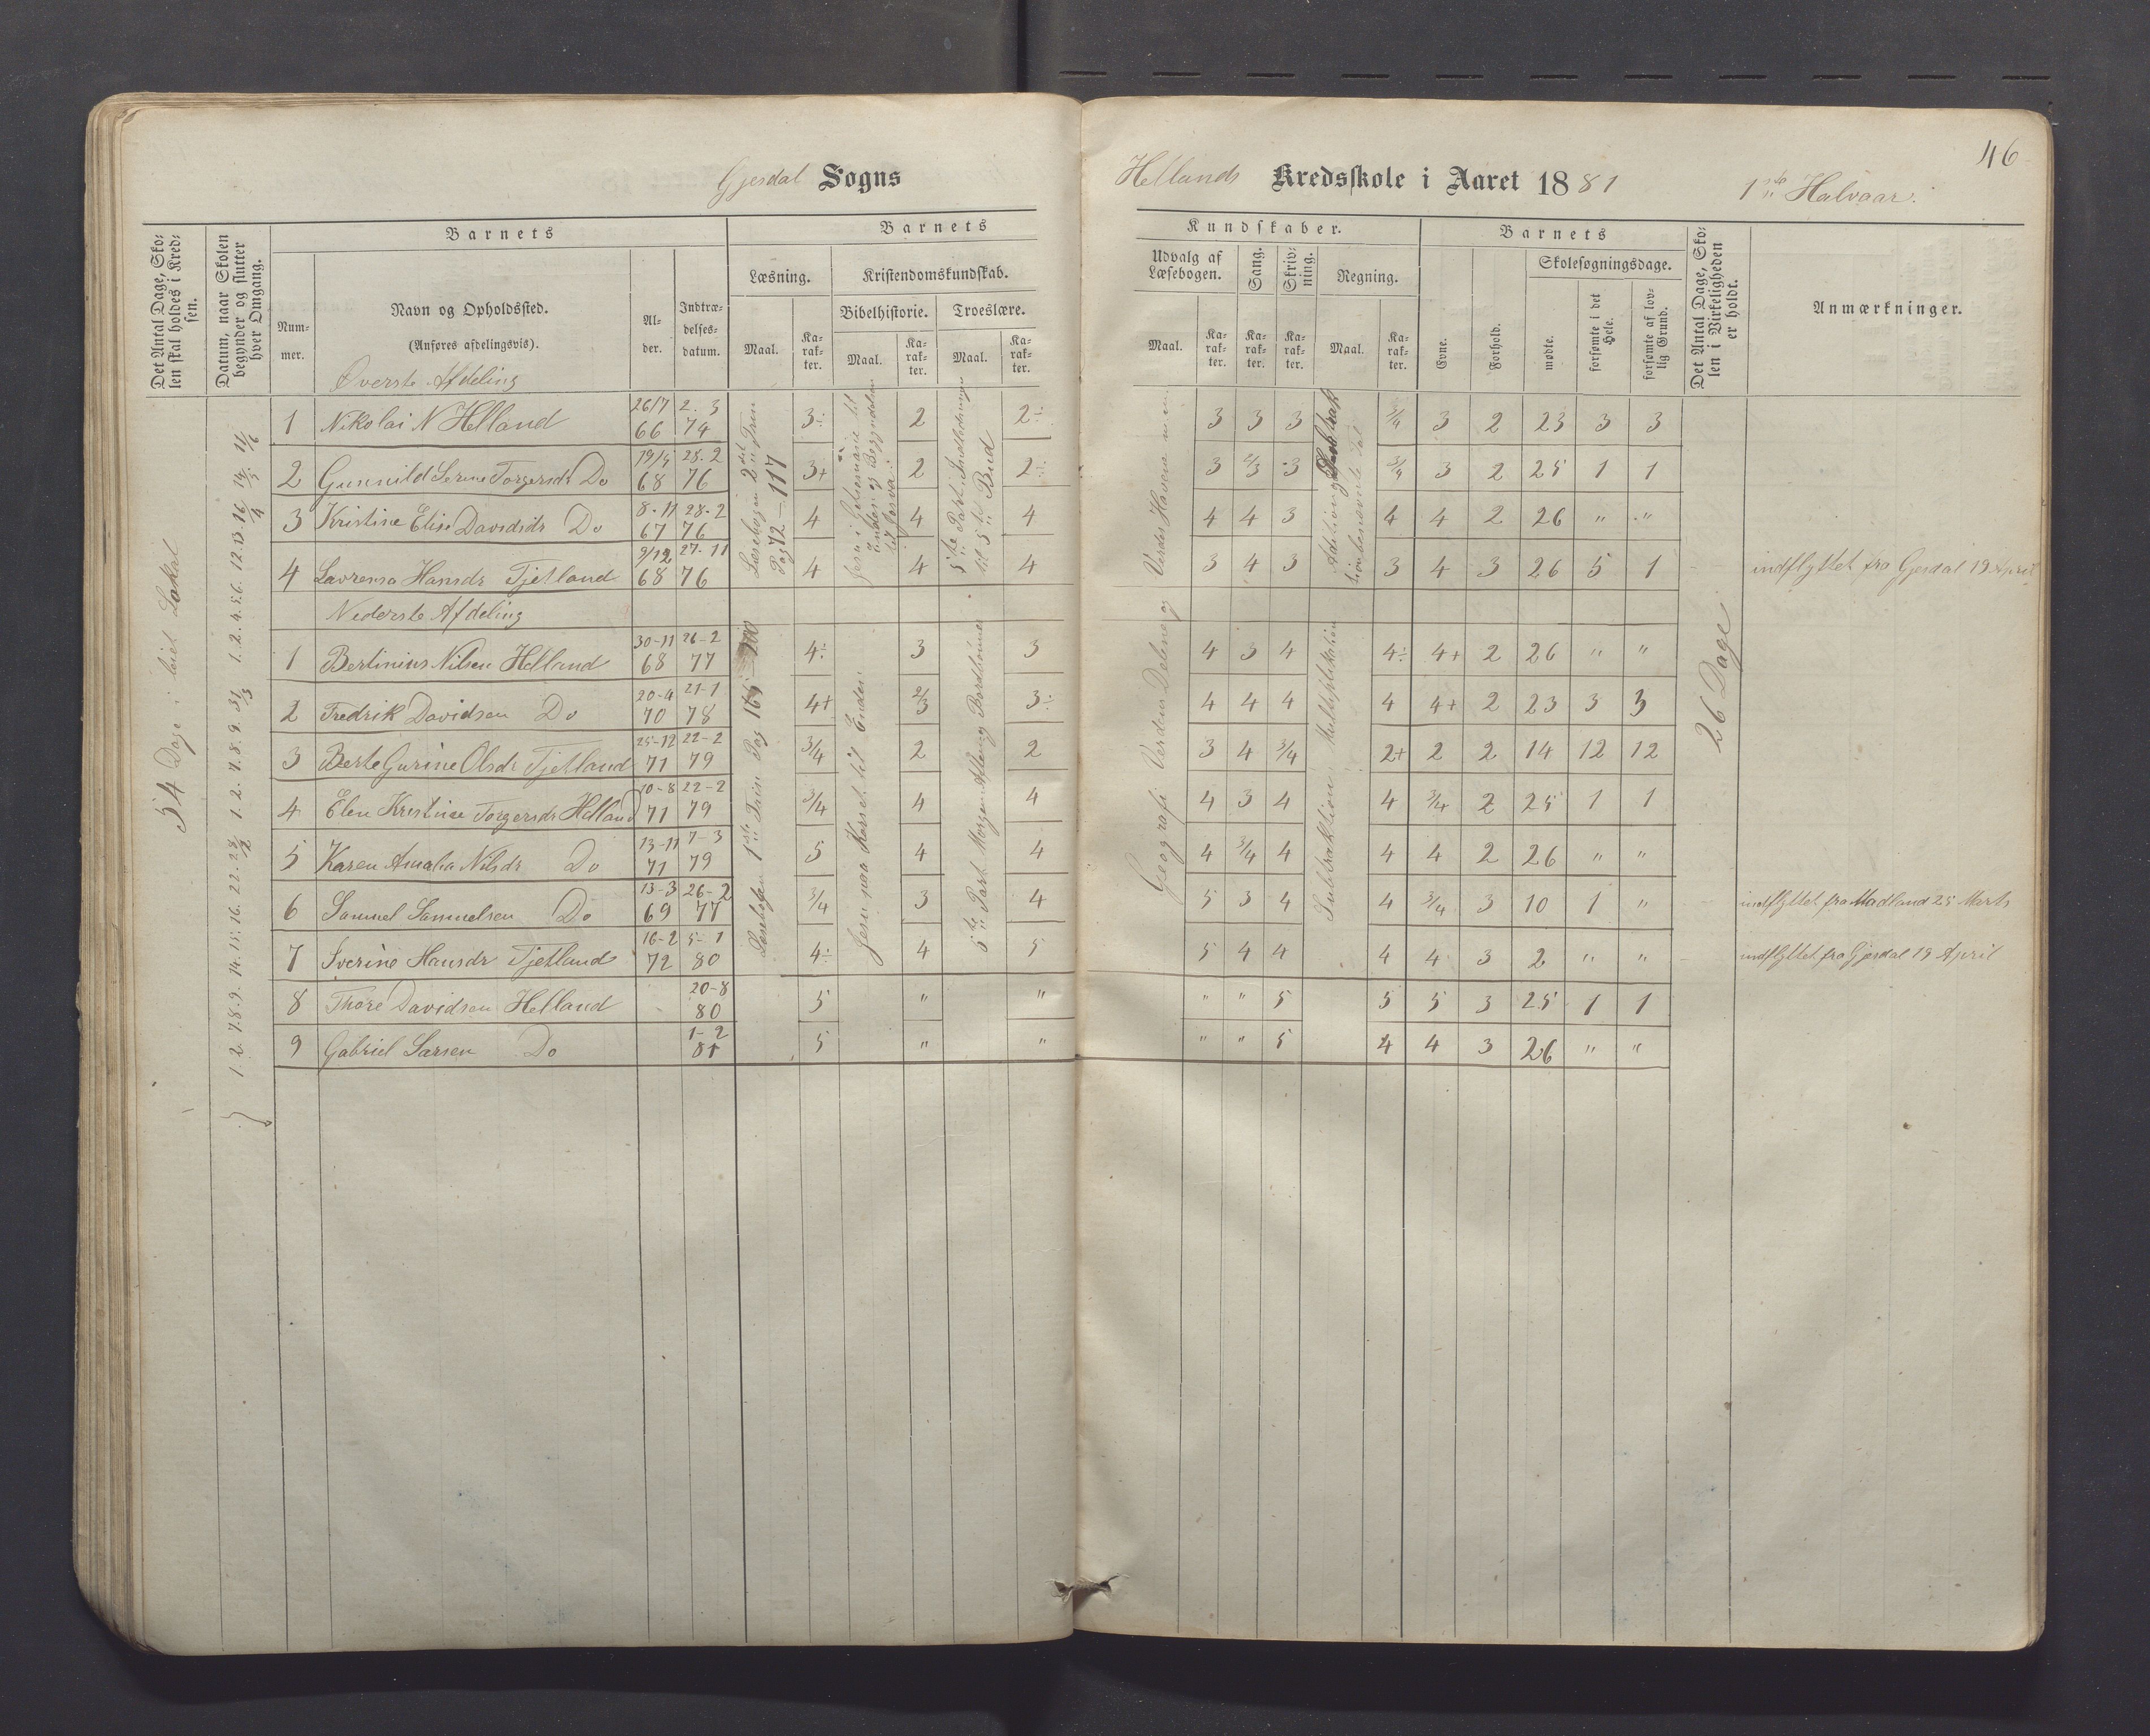 46
Gjesdal Sogns
Hellands Kredsskole i Aaret 1881 1ste Halvaar.
Det Antal Dage, Skolen skal holdes i Kredsen.
Datum, naar Skolen begynder og slutter hver Omgang.
Barnets
Nummer.
Navn og Opholdssted.
(Anføres afdelingsvis).
Alder.
Indtrædelsesdatum.
Barnets
Læsning.
Maal.
Karakter.
Kristendomskundskab.
Bibelhistorie.
Maal.
Karakter.
Troeslære.
Maal.
Karakter.
Kundskaber.
Udvalg af Læsebogen.
Maal.
Karakter.
Sang.
Karakter.
Skrivning.
Karakter.
Regning.
Maal.
Karakter.
Barnets
Evne.
Forhold.
Skolesøgningsdage.
mødte.
forsømte i det Hele.
forsømte af lovlig Grund.
Det Antal Dage, Skolen i Virkeligheden er holdt.
Anmærkninger.
54 Dage i leiet Lokal
1. 2. 7. 8. 9. 14. 15. 16. 22. 28/2 1. 2. 7. 8. 9. 31/3 1. 2. 4. 5. 6. 12. 13. 16/4 14/5 11/6
Øverste Afdeling
1 Nikolai N Helland 26/7 66 2. 3 74 3÷ 2 2÷ 3 3 3 3/4 3 2 23 3 3
2 Gunnild Serine Torgersdr Do 19/5 68 28. 2 76 3+ 2 2÷ 3 2/3 3 3/4 3 2 25 1 1
3 Kristine Elise Davidsdr Do 8-11 67 28-2 76 4 4 4 4 4 3 4 4 2 26 " "
4 Lavrensa Hansdr Tjetland 9/12 68 27-11 76 4 4 4 3 4 3 3 4 3 26 5 1 indflyttet fra Gjesdal 19 April
Læsebogen 2det Trin Pag 72-117
til 5te Bud
Nederste Afdeling
1 Bertinius Nilsen Helland 30-11 68 26-2 77 4÷ 3 3 4 3 4 4÷ 4+ 2 26 " "
2 Fredrik Davidsen Do 20-4 70 21-1 78 4+ 2/3 3÷ 4 4 4 4 4+ 2 23 3 3
3 Berte Gurine Olsdr Tjetland 25-12 71 22-2 79 3/4 2 2 3 4 3/4 2+ 2 2 14 12 12
4 Elen Kristine Torgersdr Helland 10-8 71 22-2 79 3/4 4 4 4 3 4 4 3/4 2 25 1 1
5 Karen Amalia Nilsdr Do 13-11 71 7-3 79 5 4 4 4 3/4 4 4 4 2 26 " "
6 Samuel Samuelsen Do 13-3 69 26-2 77 3/4 3 4 5 3 4 4 3/4 3 10 1 " indflyttet fra Madland 25 Marts
7 Sverine Hansdr Tjetland 16-2 72 5-1 80 4÷ 4 5 5 4 4 4 4 3 2 " " indflyttet fra Gjesdal 19 April
8 Thore Davidsen Helland 20-8 80 5 " " " " 5 5 5 3 25 1 1
9 Gabriel Larsen Do 1-2 81 5 " " " " 5 4 4 3 26 " "
Læsebogen 1ste Trin Pag
Jesu paa Korset til Enden
5te Part Morgen Aften og Bordbønner
Geografi Verdens Delene og Verdens Havene
Subtraktion Multiplikation
26 Dage